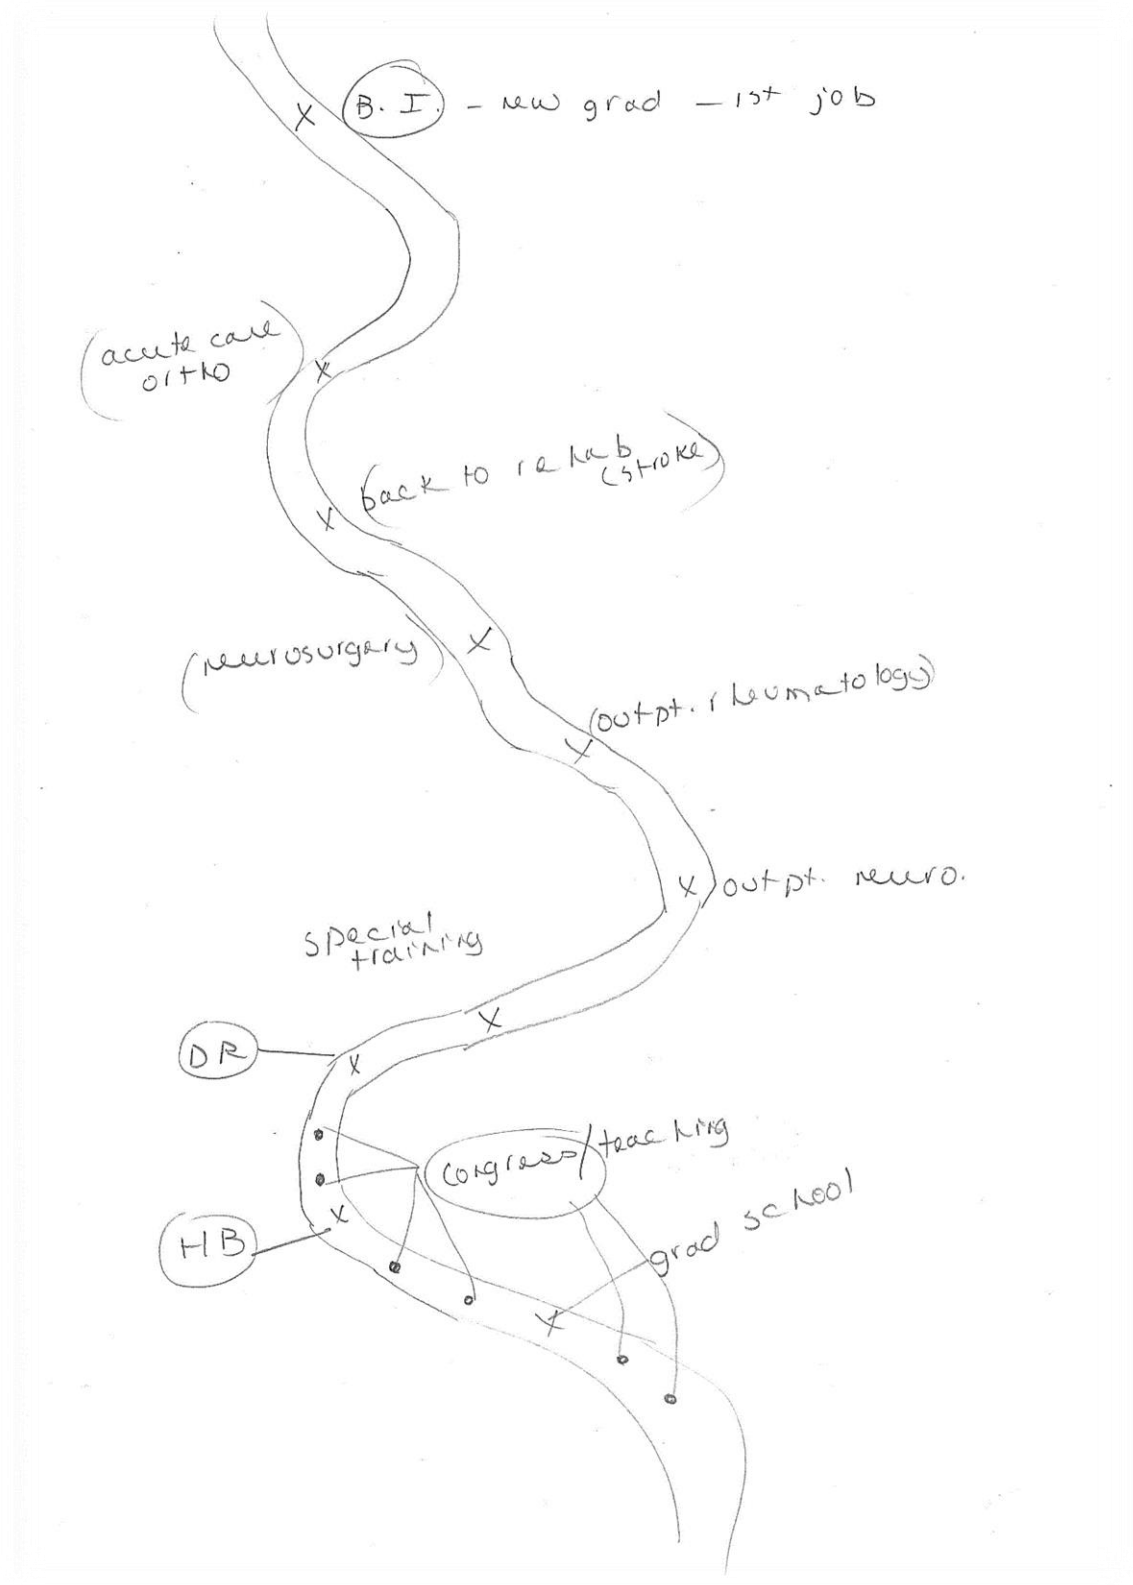 B. I. - new grad - 1st job
(acute care
ortho
(back to rehab
(stroke)
(neurosurgery)
(outpt. rheumatology)
outpt. neuro.
special
training
DR
congress/teaching
grad school
HB